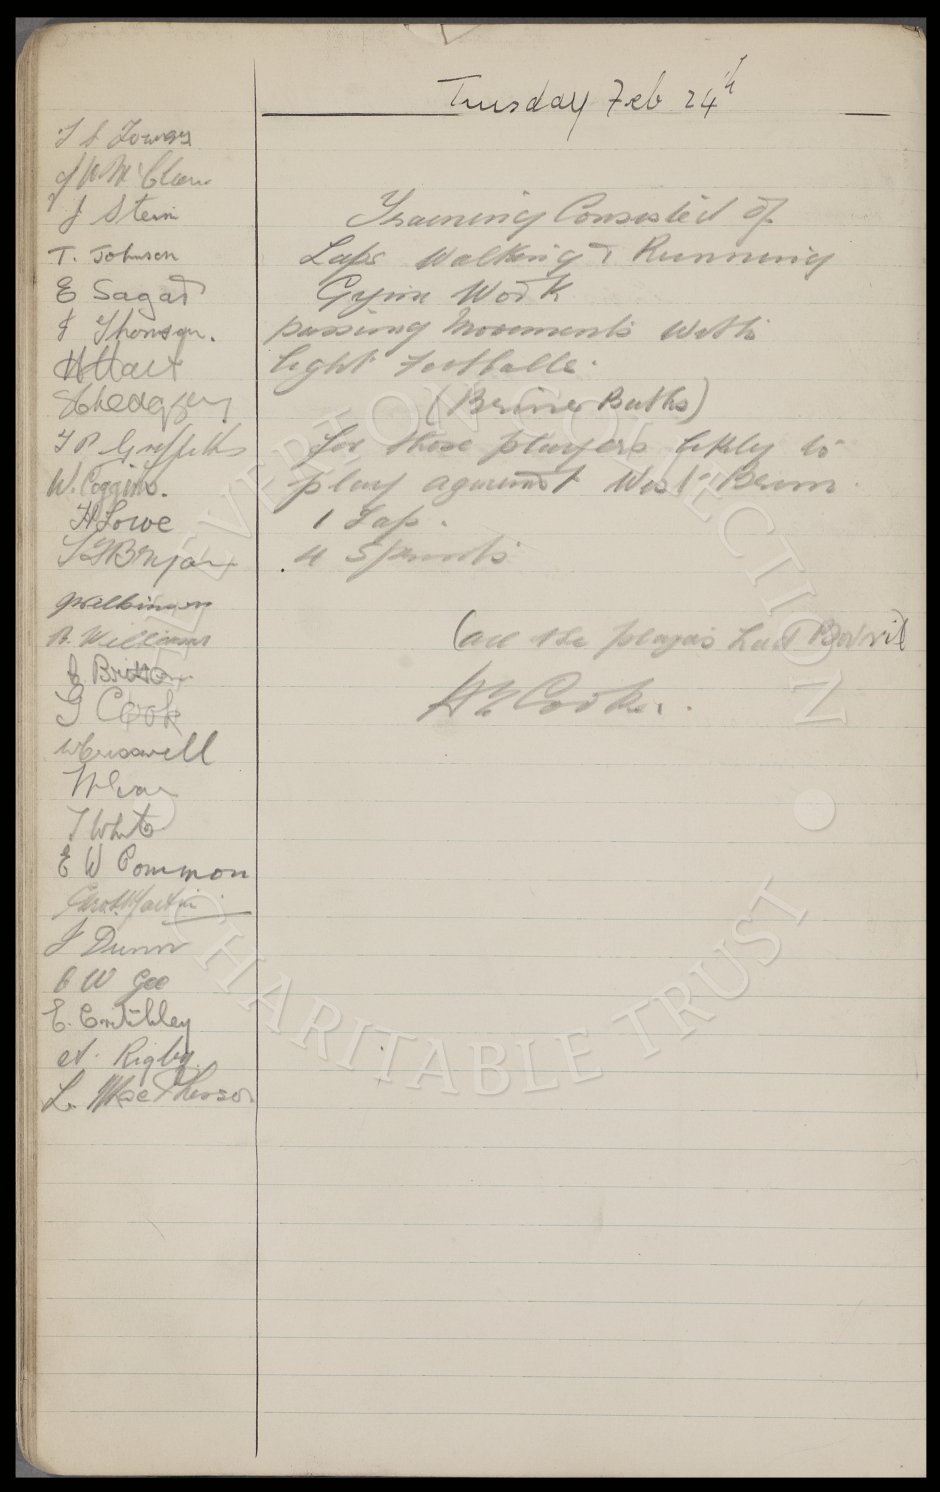 Tuesday Feb 24th
J McClure
J Stein
T. Johnson
E Sagar
J Thomson.
H Hart
T P Griffiths
W. Coggins.
H Lowe
Wilkinson
B. Williams
C Britton
G Cook
W Cresswell
T White
E W Common
Geo. Martin
J Dunn
C W Gee
E. Critchley
A. Rigby
L. MacPherson
Training Consisted of
Laps Walking & Running
Gym Work
passing Movements with
light Footballs.
(Brine Baths)
for those players likely to
play against West Brom.
1 Lap.
4 Sprints
(all the players had Bovril
H E Cooke.
EVERTON COLLECTION
CHARITABLE TRUST